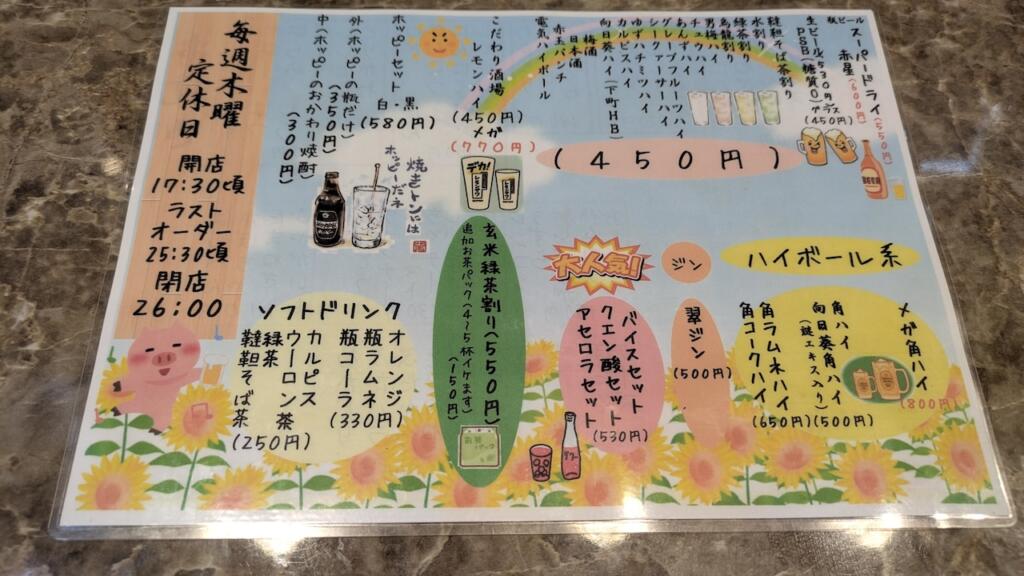 瓶ビール
スーパードライ(550円)
赤星(600円)
生ビール530円デス
PSB(糖質0)↗(450円)
韃靼そば茶割り
水割り
緑茶割り
烏龍割り
男梅ハイ
チュウハイ
あんずハイ
グレープフルーツハイ
シークワーサーハイ
ゆずハチミツハイ
カルピスハイ
向日葵ハイ(下町HB)
梅酒
日本酒
赤玉パンチ
電気ハイボール
(450円)
こだわり酒場
レモンハイ
(450円)
メガ
(770円)
デカ!
ホッピーセット
白・黒
(580円)
外(ホッピーの瓶だけ)
(350円)
中(ホッピーのおかわり焼酎)
(300円)
焼きトンには
ホッピーだネ
毎週木曜
定休日
開店
17:30頃
ラスト
オーダー
25:30頃
閉店
26:00
ハイボール系
メガ角ハイ
(800円)
角ハイ
向日葵角ハイ
(謎エキス入り)
(500円)
角ラムネハイ
角コークハイ
(650円)
ジン
翠ジン
(500円)
大人気!
バイスセット
クエン酸セット
アセロラセット
(530円)
玄米緑茶割り(550円)
追加お茶パック(4～5杯イケます)
(150円)
ソフトドリンク
オレンジ
瓶ラムネ
瓶コーラ
(330円)
カルピス
ウーロン茶
緑茶
韃靼そば茶
(250円)
BEER